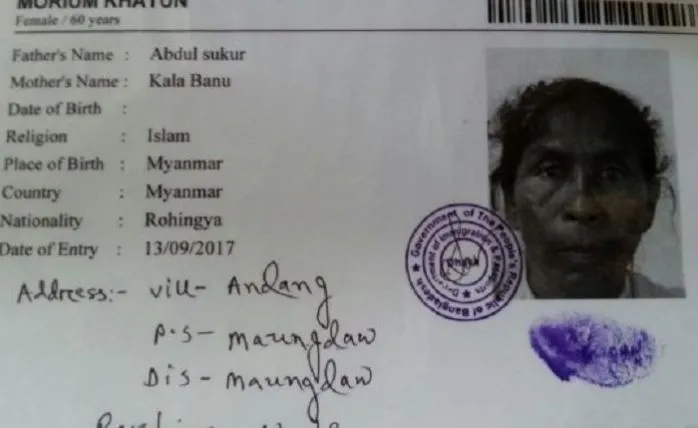 MORIUM KHATUN
Female / 60 years
Father's Name : Abdul sukur
Mother's Name : Kala Banu
Date of Birth :
Religion : Islam
Place of Birth : Myanmar
Country : Myanmar
Nationality : Rohingya
Date of Entry : 13/09/2017
Government of The People's Republic of Bangladesh
Department of Immigration & Passports
Dhaka
Address:- vill- Andang
P.S- maungdaw
Dis- maungdaw